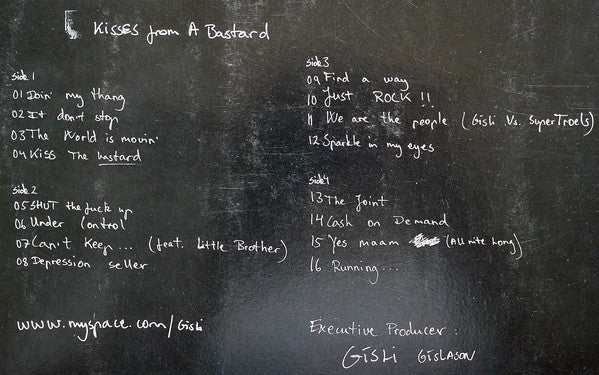 Kisses from A Bastard
side 1
01 Doin' my thang
02 It don't stop
03 The World is movin'
04 Kiss The bastard
side 2
05 SHUT the fuck up
06 Under Control
07 Can't Keep... (feat. Little Brother)
08 Depression seller
www.myspace.com/Gisli
side 3
09 Find a way
10 Just ROCK!!
11 We are the people (Gisli Vs. SuperTroels)
12 Sparkle in my eyes
side 4
13 The Joint
14 Cash on Demand
15 Yes maam (All nite Long)
16 Running...
Executive Producer:
GISLI GISLASON